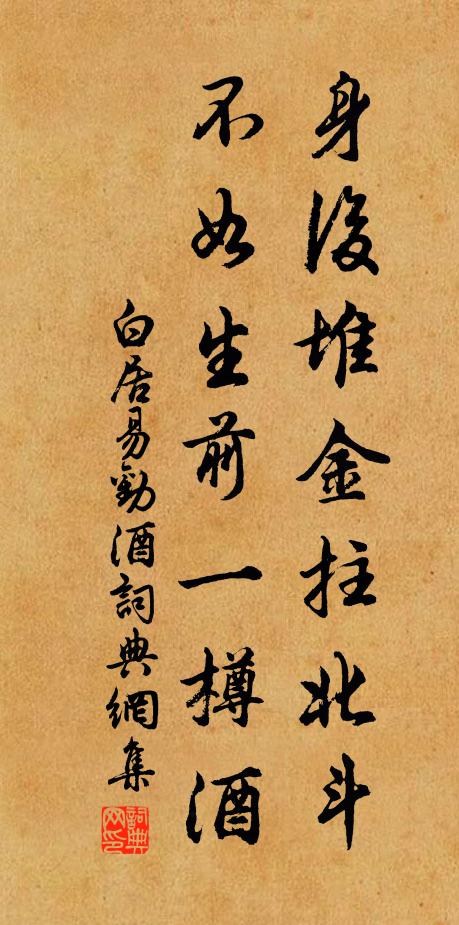 身後堆金拄北斗
不如生前一樽酒
白居易勸酒詞典網集
詞典网印